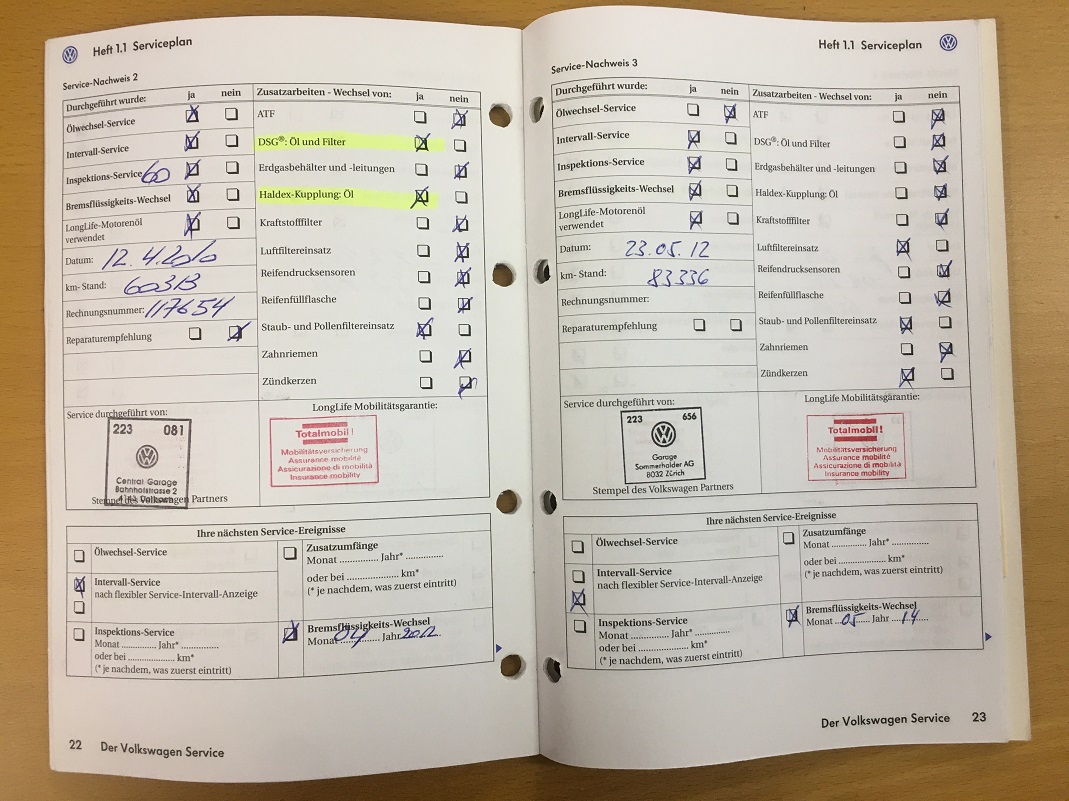 Heft 1.1 Serviceplan
Service-Nachweis 2
Durchgeführt wurde: ja nein
Ölwechsel-Service
Intervall-Service
Inspektions-Service 60
Bremsflüssigkeits-Wechsel
LongLife-Motorenöl
verwendet
Datum: 12.4.2010
km- Stand: 60313
Rechnungsnummer: 117654
Reparaturempfehlung
Zusatzarbeiten - Wechsel von: ja nein
ATF
DSG®: Öl und Filter
Erdgasbehälter und -leitungen
Haldex-Kupplung: Öl
Kraftstofffilter
Luftfiltereinsatz
Reifendrucksensoren
Reifenfüllflasche
Staub- und Pollenfiltereinsatz
Zahnriemen
Zündkerzen
Service durchgeführt von:
223 081
Central Garage
Bahnhofstrasse 2
Stempel des Volkswagen Partners
LongLife Mobilitätsgarantie:
Totalmobil!
Mobilitätsversicherung
Assurance mobilité
Assicurazione di mobilità
Insurance mobility
Ihre nächsten Service-Ereignisse
Ölwechsel-Service
Intervall-Service
nach flexibler Service-Intervall-Anzeige
Inspektions-Service
Monat .............. Jahr* ..............
oder bei .................... km*
(* je nachdem, was zuerst eintritt)
Zusatzumfänge
Monat .............. Jahr* ..............
oder bei .................... km*
(* je nachdem, was zuerst eintritt)
Bremsflüssigkeits-Wechsel
Monat 04 Jahr 2012
22 Der Volkswagen Service
Heft 1.1 Serviceplan
Service-Nachweis 3
Durchgeführt wurde: ja nein
Ölwechsel-Service
Intervall-Service
Inspektions-Service
Bremsflüssigkeits-Wechsel
LongLife-Motorenöl
verwendet
Datum: 23.05.12
km- Stand: 83336
Rechnungsnummer:
Reparaturempfehlung
Zusatzarbeiten - Wechsel von: ja nein
ATF
DSG®: Öl und Filter
Erdgasbehälter und -leitungen
Haldex-Kupplung: Öl
Kraftstofffilter
Luftfiltereinsatz
Reifendrucksensoren
Reifenfüllflasche
Staub- und Pollenfiltereinsatz
Zahnriemen
Zündkerzen
Service durchgeführt von:
223 656
Garage
Sommerhalder AG
8032 Zürich
Stempel des Volkswagen Partners
LongLife Mobilitätsgarantie:
Totalmobil!
Mobilitätsversicherung
Assurance mobilité
Assicurazione di mobilità
Insurance mobility
Ihre nächsten Service-Ereignisse
Ölwechsel-Service
Intervall-Service
nach flexibler Service-Intervall-Anzeige
Inspektions-Service
Monat .............. Jahr* ..............
oder bei .................... km*
(* je nachdem, was zuerst eintritt)
Zusatzumfänge
Monat .............. Jahr* ..............
oder bei .................... km*
(* je nachdem, was zuerst eintritt)
Bremsflüssigkeits-Wechsel
Monat ...05... Jahr ...14...
Der Volkswagen Service 23